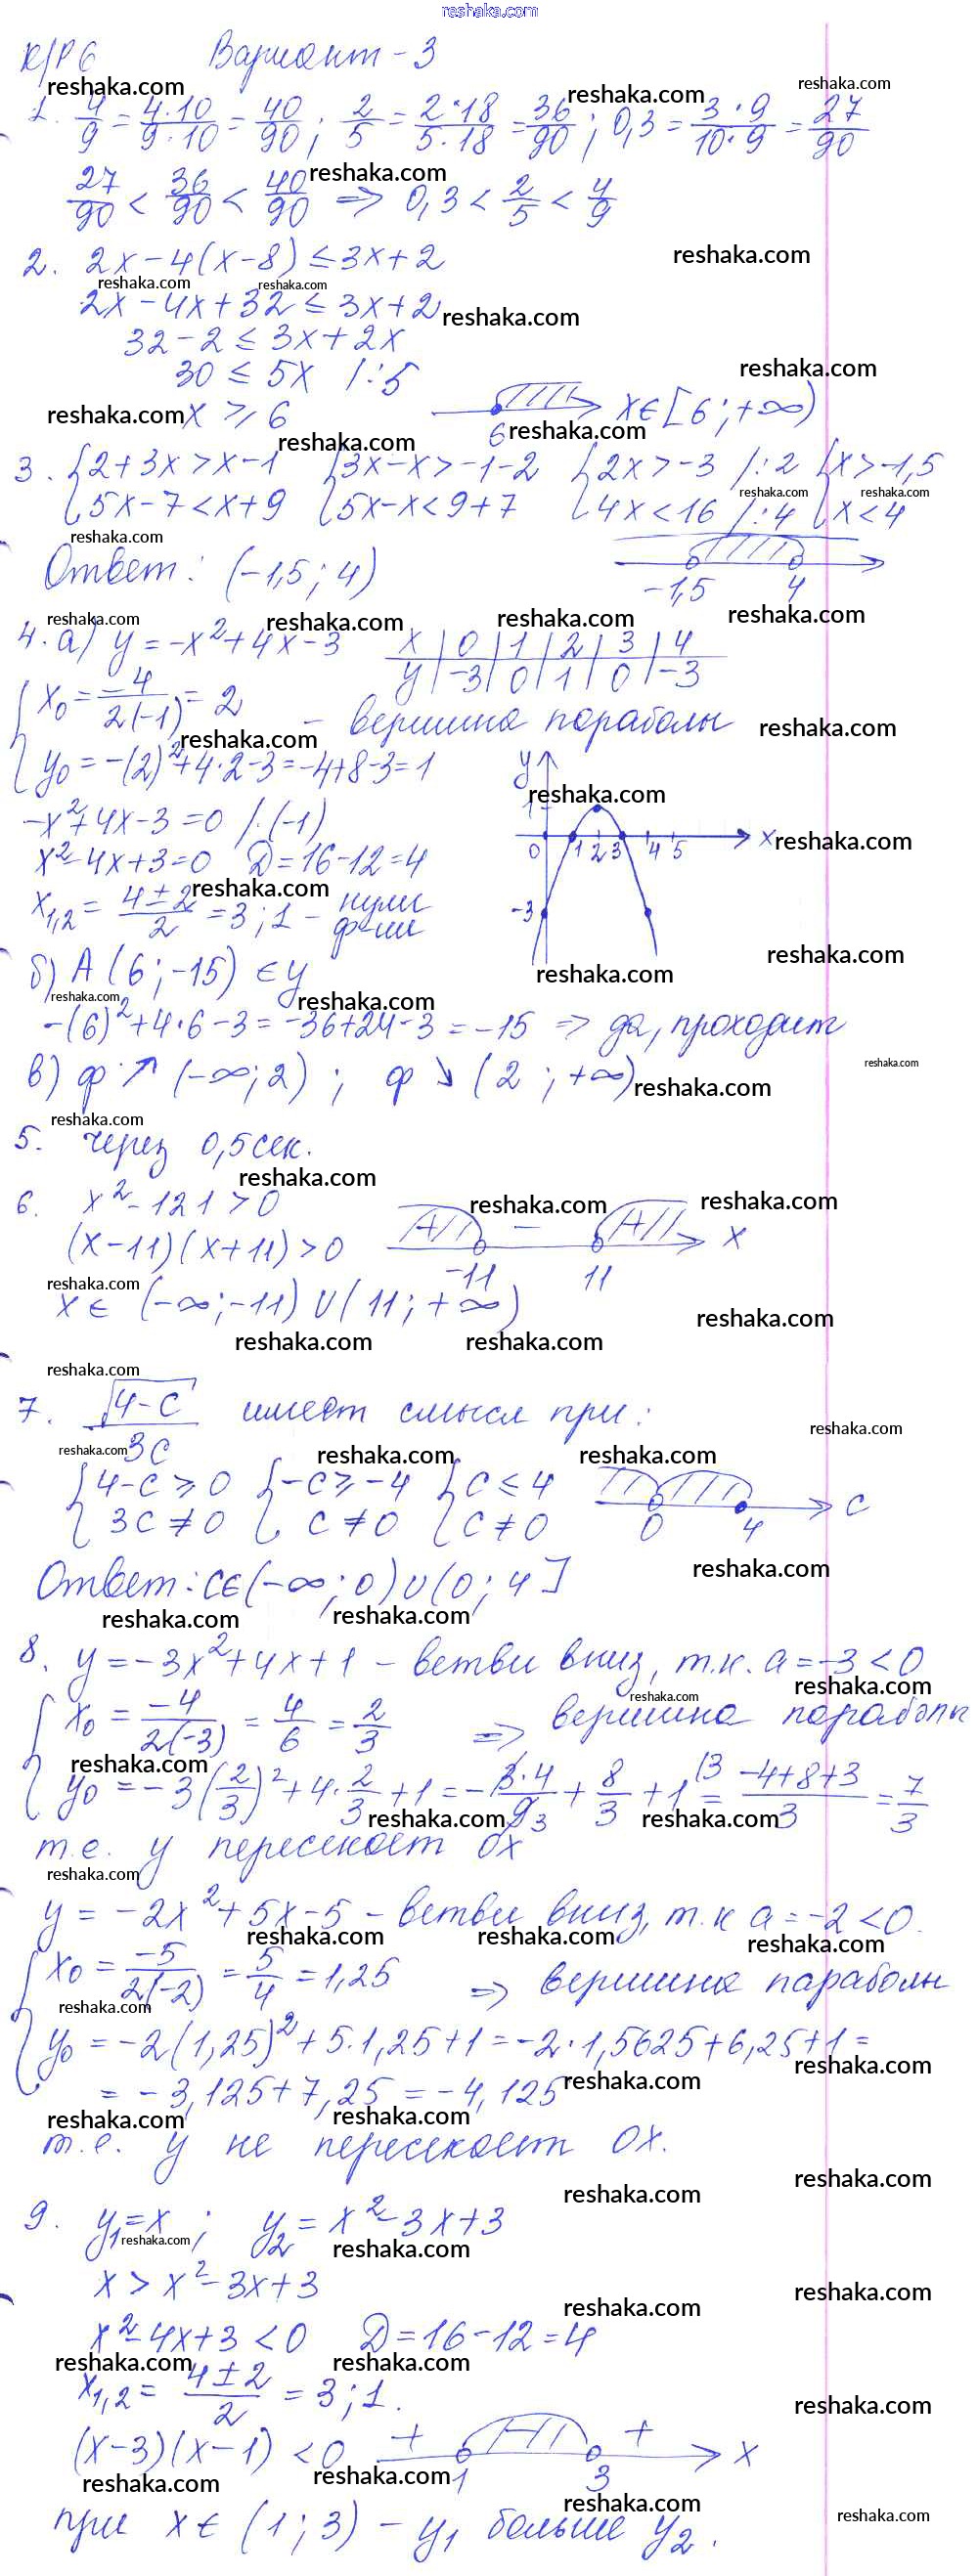 reshaka.com
К/Р 6 Вариант - 3
1. 4/9 = 4·10/9·10 = 40/90 ; 2/5 = 2·18/5·18 = 36/90 ; 0,3 = 3·9/10·9 = 27/90
27/90 < 36/90 < 40/90 => 0,3 < 2/5 < 4/9
2. 2x - 4(x-8) ≤ 3x+2
2x - 4x + 32 ≤ 3x+2
32 - 2 ≤ 3x + 2x
30 ≤ 5x /:5
x ≥ 6 6 x∈[6; +∞)
3. {2+3x > x-1 {3x-x > -1-2 {2x > -3 /:2 {x > -1,5
{5x-7 < x+9 {5x-x < 9+7 {4x < 16 /:4 {x < 4
Ответ: (-1,5; 4) -1,5 4
4. а) y = -x²+4x-3 x | 0 | 1 | 2 | 3 | 4
y | -3 | 0 | 1 | 0 | -3
{x₀ = -4/2(-1) = 2 - вершина параболы
{y₀ = -(2)²+4·2-3 = -4+8-3 = 1
-x²+4x-3 = 0 /·(-1)
x²-4x+3 = 0 D = 16-12 = 4
x₁,₂ = 4±2/2 = 3; 1 - нули ф-ии
y 1 0 1 2 3 4 5 x -3
б) A(6; -15) ∈ y
-(6)²+4·6-3 = -36+24-3 = -15 => да, проходит
в) ф ↗ (-∞; 2) ; ф ↘ (2; +∞)
5. через 0,5 сек.
6. x² - 121 > 0
(x-11)(x+11) > 0 -11 - 11 x
x ∈ (-∞; -11) ∪ (11; +∞)
7. √4-c/3c имеет смысл при:
{4-c ≥ 0 {-c ≥ -4 {c ≤ 4
{3c ≠ 0 {c ≠ 0 {c ≠ 0 0 4 c
Ответ: c∈(-∞; 0)∪(0; 4]
8. y = -3x²+4x+1 - ветви вниз, т.к. a = -3 < 0
{x₀ = -4/2(-3) = 4/6 = 2/3 => вершина параболы
{y₀ = -3(2/3)²+4·2/3+1 = -3·4/9 3 + 8/3 + 1 (3 = -4+8+3/3 = 7/3
т.е. y пересекает ox
y = -2x²+5x-5 - ветви вниз, т.к a = -2 < 0.
{x₀ = -5/2(-2) = 5/4 = 1,25 => вершина параболы
{y₀ = -2(1,25)²+5·1,25+1 = -2·1,5625+6,25+1 =
= -3,125+7,25 = -4,125
т.е. y не пересекает OX.
9. y₁ = x ; y₂ = x²-3x+3
x > x²-3x+3
x²-4x+3 < 0 D = 16-12 = 4
x₁,₂ = 4±2/2 = 3; 1.
(x-3)(x-1) < 0 + 1 - 3 + x
при x ∈ (1; 3) - y₁ больше y₂.